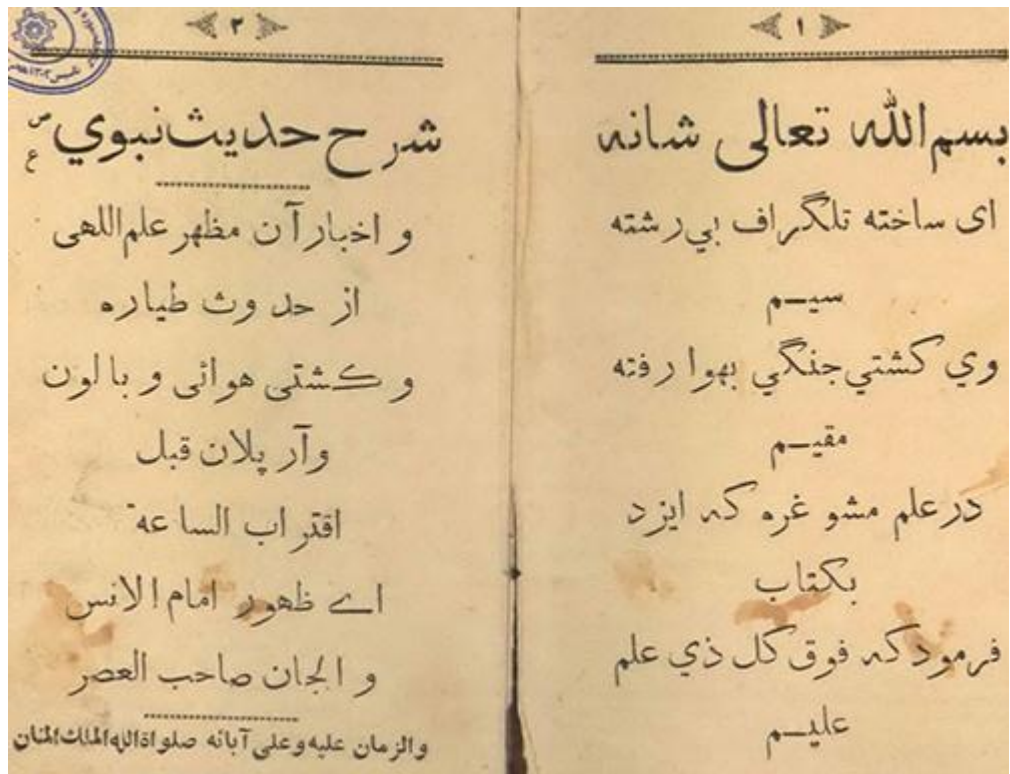 ۱
بسم الله تعالی شانه
ای ساخته تلگراف بي رشته
سیـم
وي کشتي جنگي بهوا رفته
مقیـم
در علم مشو غره که ایزد
بکتاب
فرمود که فوق کل ذي علم
علیـم
۲
شرح حدیث نبوي ص ع
و اخبار آن مظهر علم اللهی
از حدوث طیاره
و کشتی هوائی و بالون
و آر پلان قبل
اقتراب الساعة
اے ظهور امام الانس
و الجان صاحب العصر
و الزمان علیه و علی آبائه صلواة الله الملك المنان